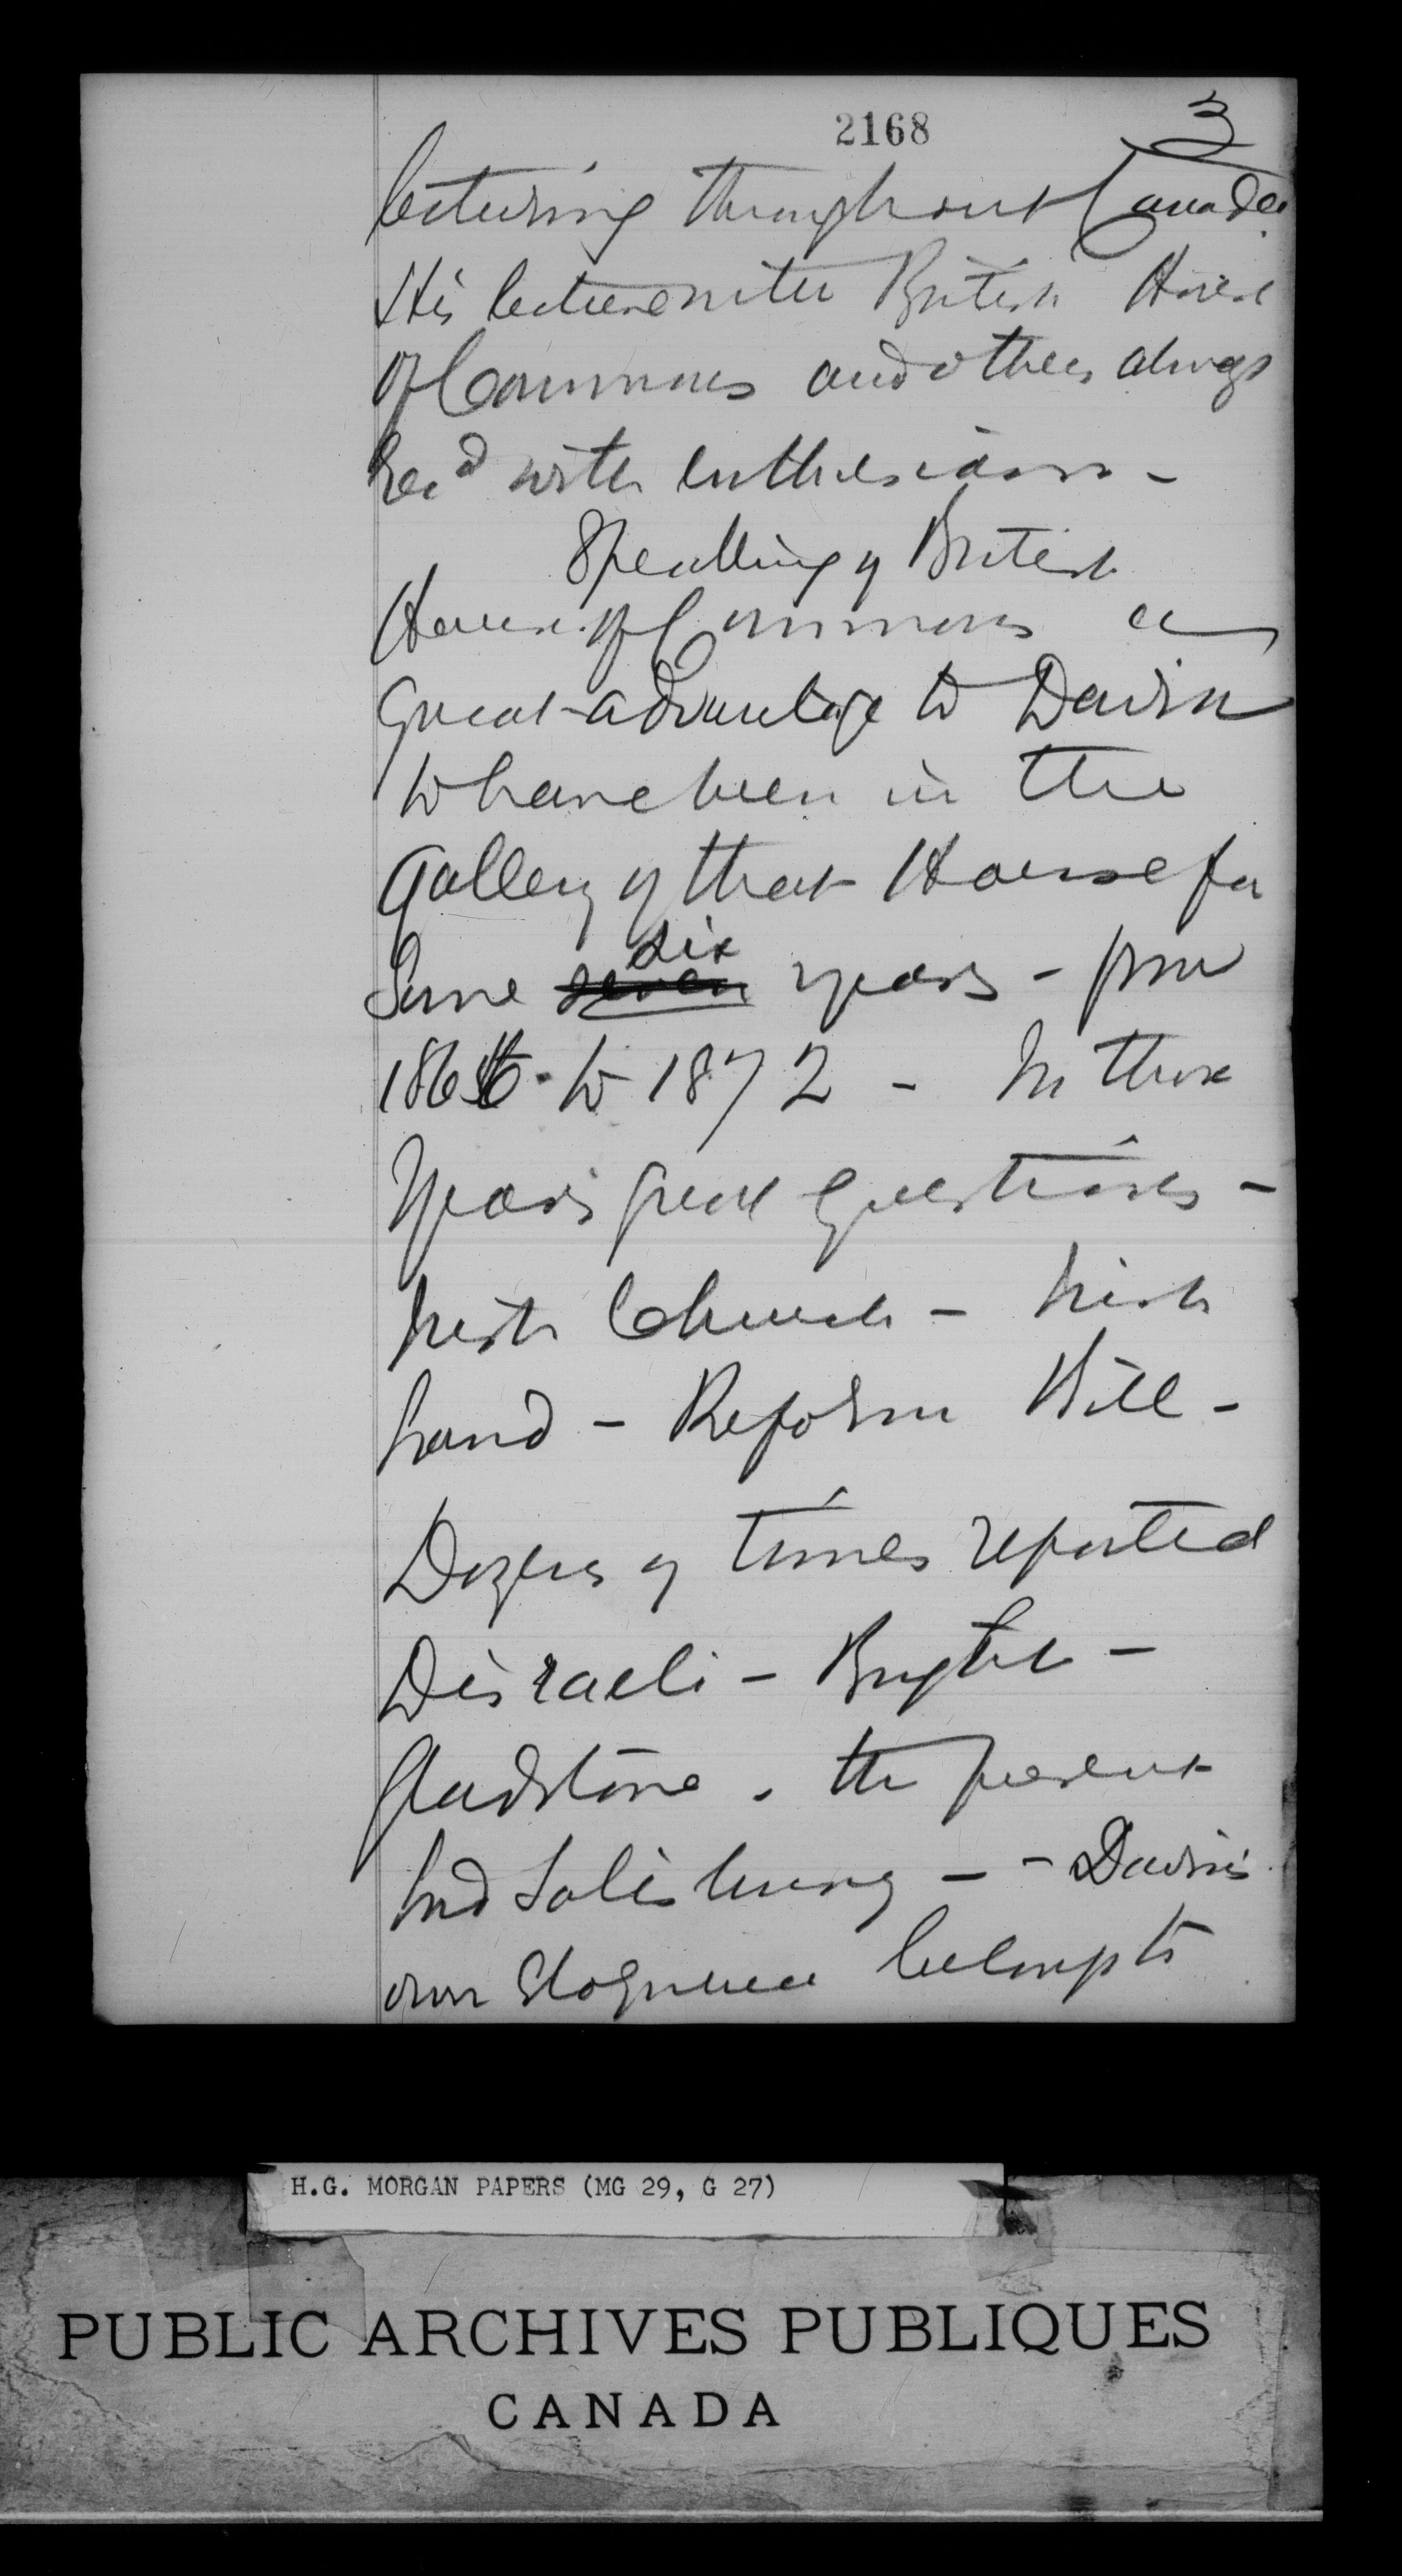 2168
3
lecturing throughout Canada.
His lecture on the British House
of Commons and others always
rec'd with enthusiasm -
Speaking of British
House of Commons a
great advantage to Davin
to have been in the
gallery of that House for
some seven six years - from
1866 to 1872 - In those
years great questions -
Irish Church - Irish
Land - Reform Bill -
Dozens of times reported
Disraeli - Bright -
Gladstone. the present
Lord Salisbury - - Davin's
own eloquence belongs to
H.G. MORGAN PAPERS (MG 29, G 27)
PUBLIC ARCHIVES PUBLIQUES
CANADA